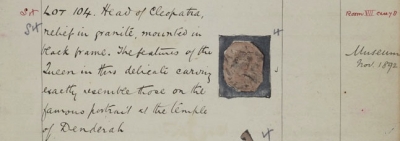 SX Lot 104. Head of Cleopatra,
SX relief in granite, mounted in
black frame. The features of the
Queen in this delicate carving
exactly resemble those on the
famous portrait at the temple
of Denderah
Room XII. case
Museum
Nov. 1892